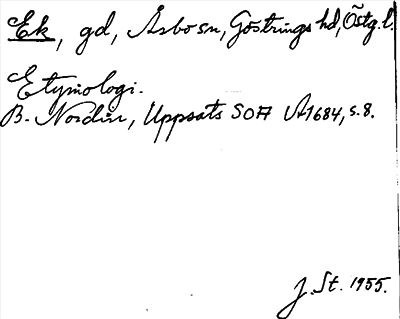 Ek, gd, Åsbo sn, Göstrings hd, Östg. l.
Etymologi.
B. Nordin, Uppsats SOFA A1684, s. 8.
J. St. 1955.